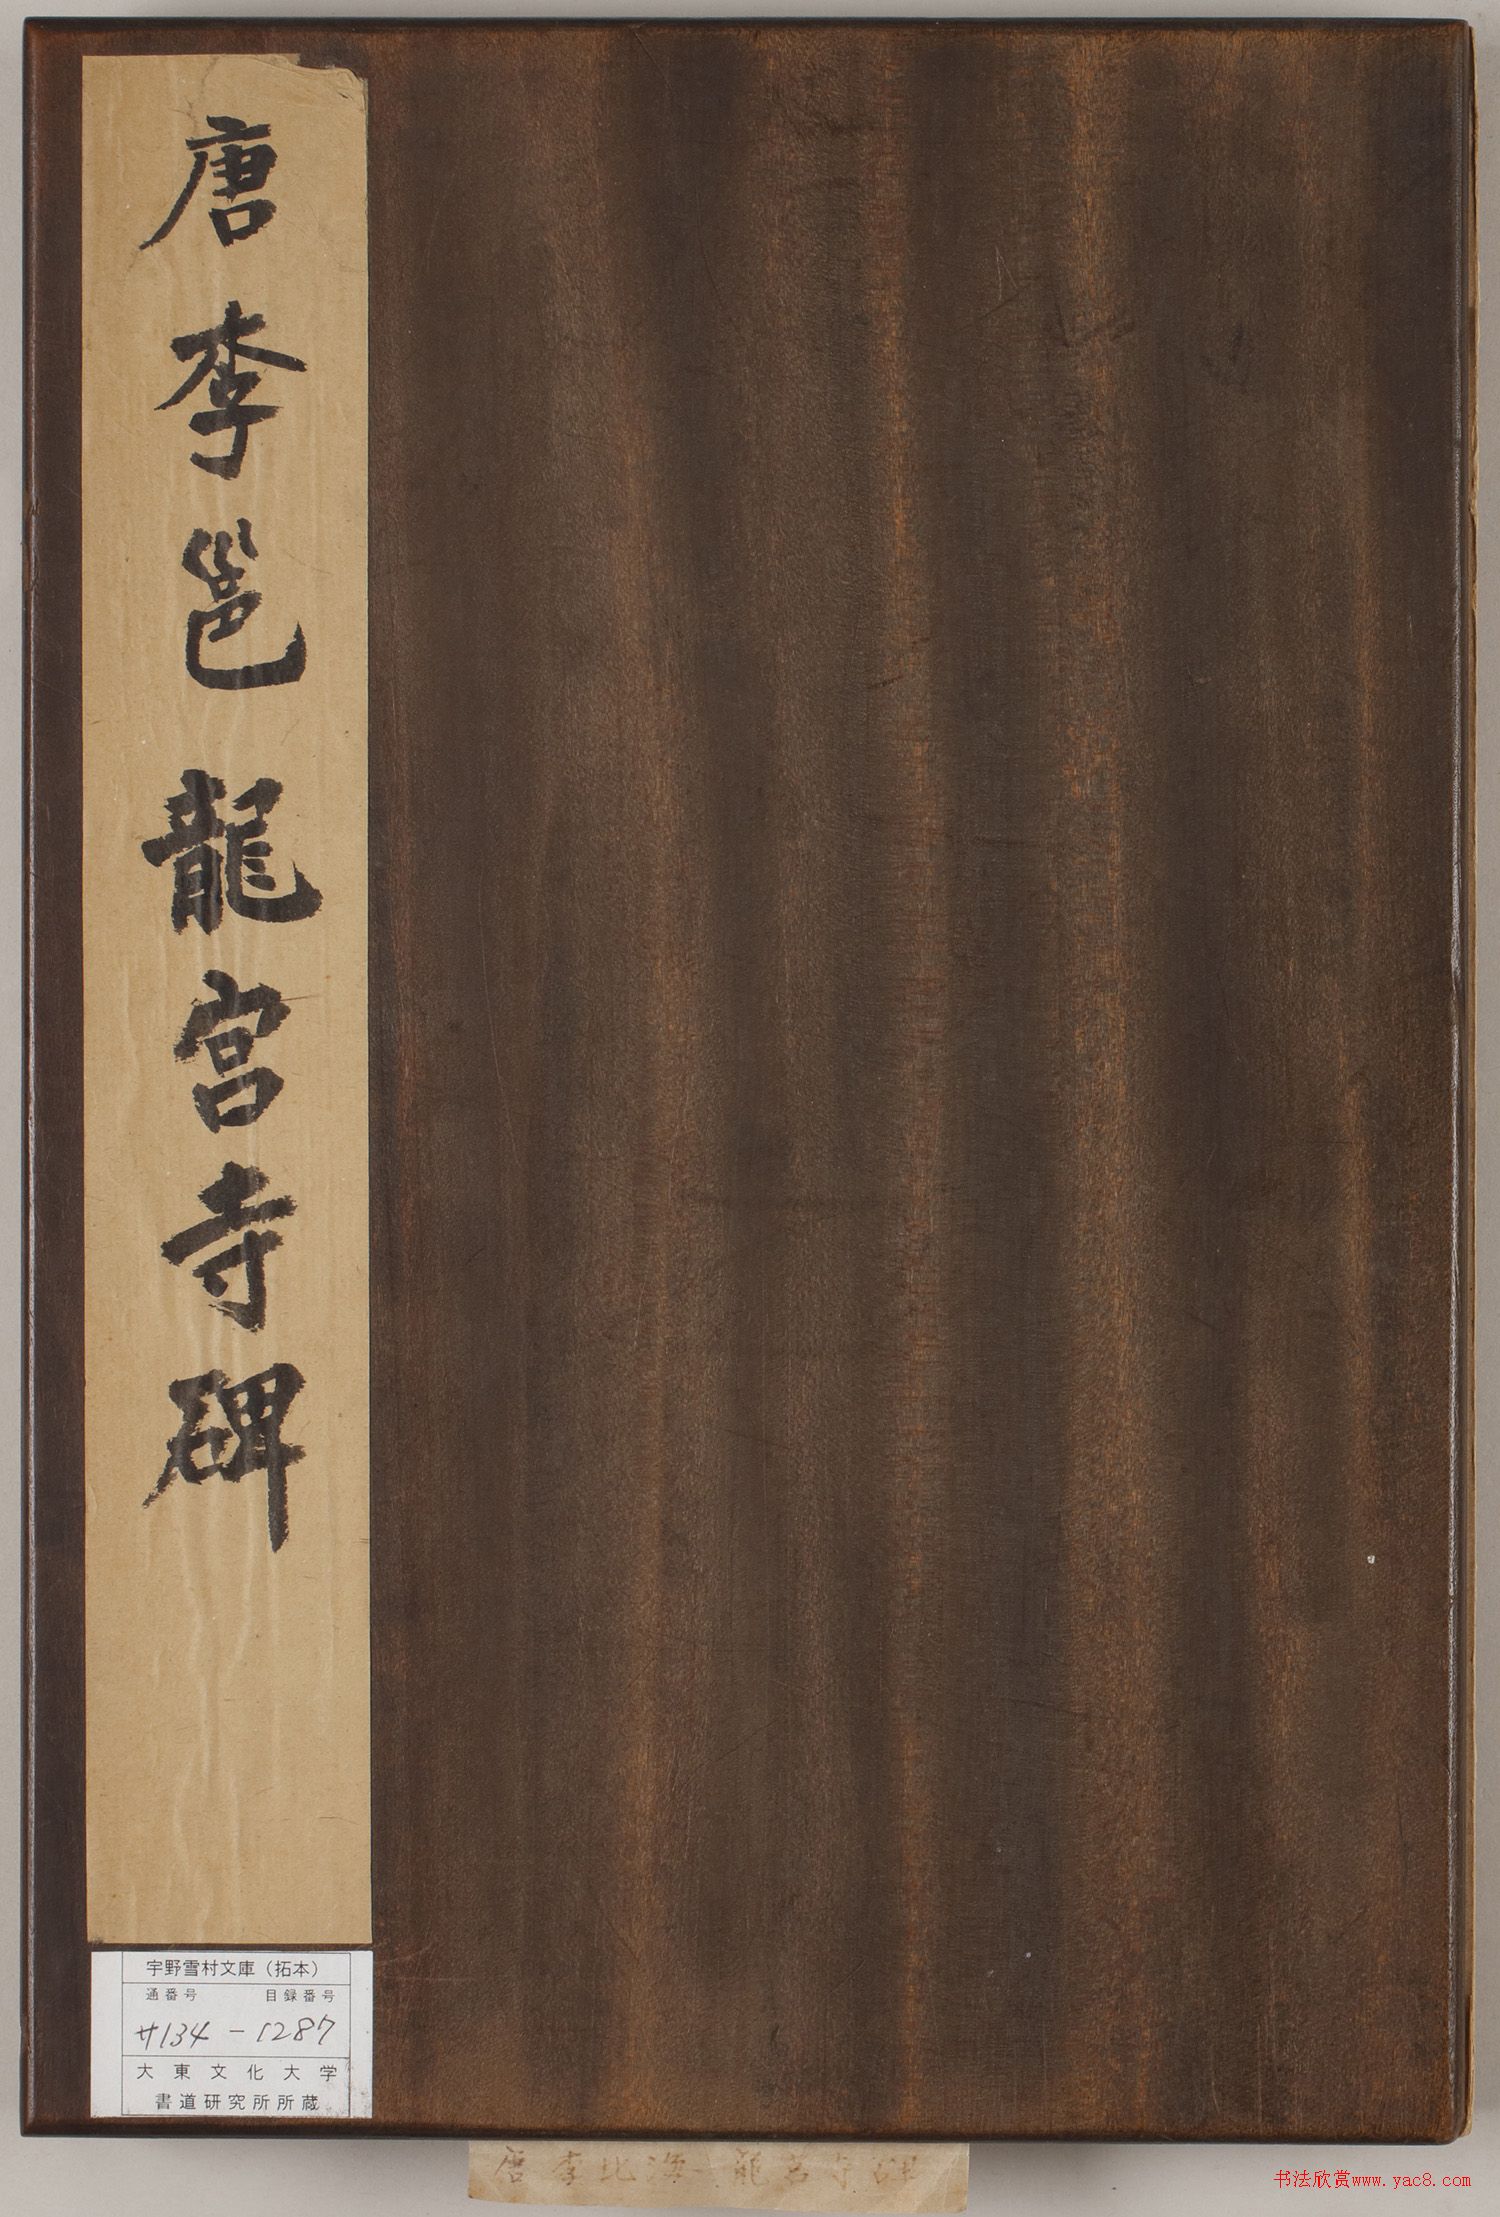 唐李邕龍宮寺碑
宇野雪村文庫（拓本）
通番号 目録番号
サ134 - 1287
大東文化大学
書道研究所所蔵
唐 李北海 龍宮寺碑
书法欣赏www.yac8.com